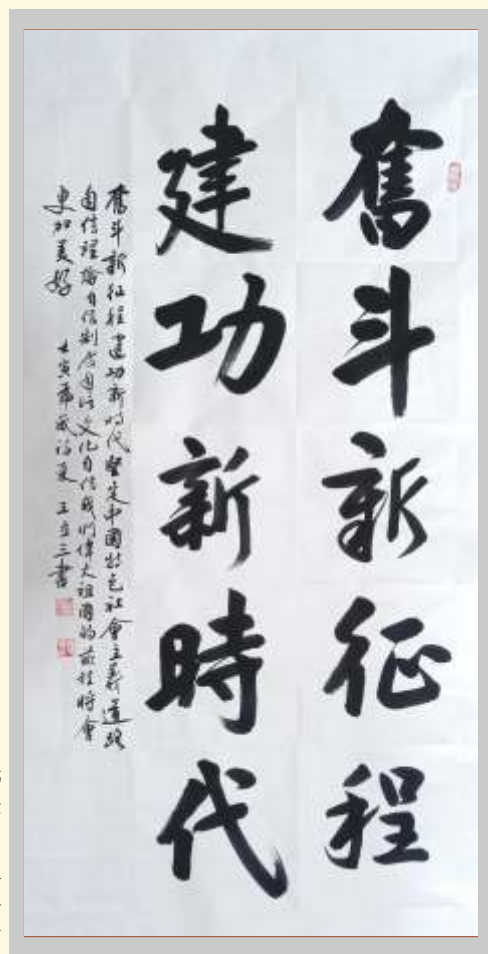 奮斗新征程
建功新時代
奮斗新征程建功新时代堅定中國特色社會主義道路
自信理論自信制度自信文化自信我們偉大祖國的前程将會
更加美好 壬寅虎歲初夏 王立三書